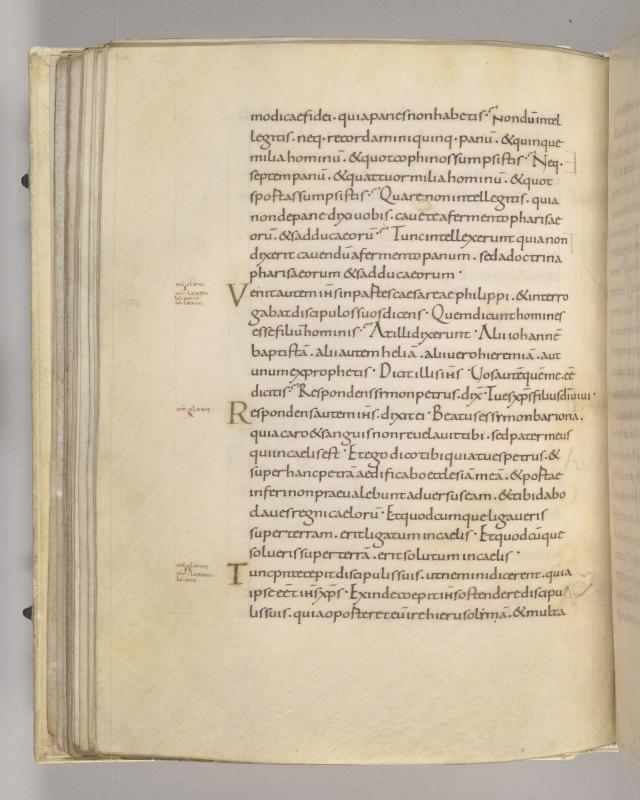 modicaefidei. quia panes non habetis. Nondū intel
legitis. neq. recordamini quinq. panū. & quinque
milia hominū. & quot cophinos sumpsistis. Neq.
septem panū. & quattuor milia hominū. & quot
sportas sumpsistis. Quare non intellegitis. quia
non de pane dixi uobis. cauete a fermento pharisae
orū. & sadducaeorū. Tunc intellexerunt quia non
dixerit cauendū a fermento panum. sed a doctrina
pharisaeorum & sadducaeorum.
Venit autem ihs in partes caesareae philippi. & interro
gabat discipulos suos dicens. Quem dicunt homines
esse filiū hominis. At illi dixerunt. Alii iohannē
baptistā. alii autem heliā. alii uero hieremiā. aut
unum ex prophetis. Dicit illis ihs. Uos autē quē me eē
dicitis. Respondens simon petrus. dix. Tu es xps filius dī uiui.
Respondens autem ihs. dixit ei. Beatus es simon bariona.
quia caro & sanguis non reuelauit tibi. sed pater meus
qui in caelis est. Et ego dico tibi quia tu es petrus. &
super hanc petrā aedificabo ecclesiā meā. & portae
inferi non praeualebunt aduersus eam. & tibi dabo
claues regni caelorū. Et quodcumque ligaueris
super terram. erit ligatum in caelis. Et quodcūque
solueris super terrā. erit solutum in caelis.
Tunc praecepit discipulis suis. ut nemini dicerent. quia
ipse eēt ihs xps. Exinde coepit ihs ostendere discipu
lis suis. quia oporteret eū ire hierusolimā. & multa